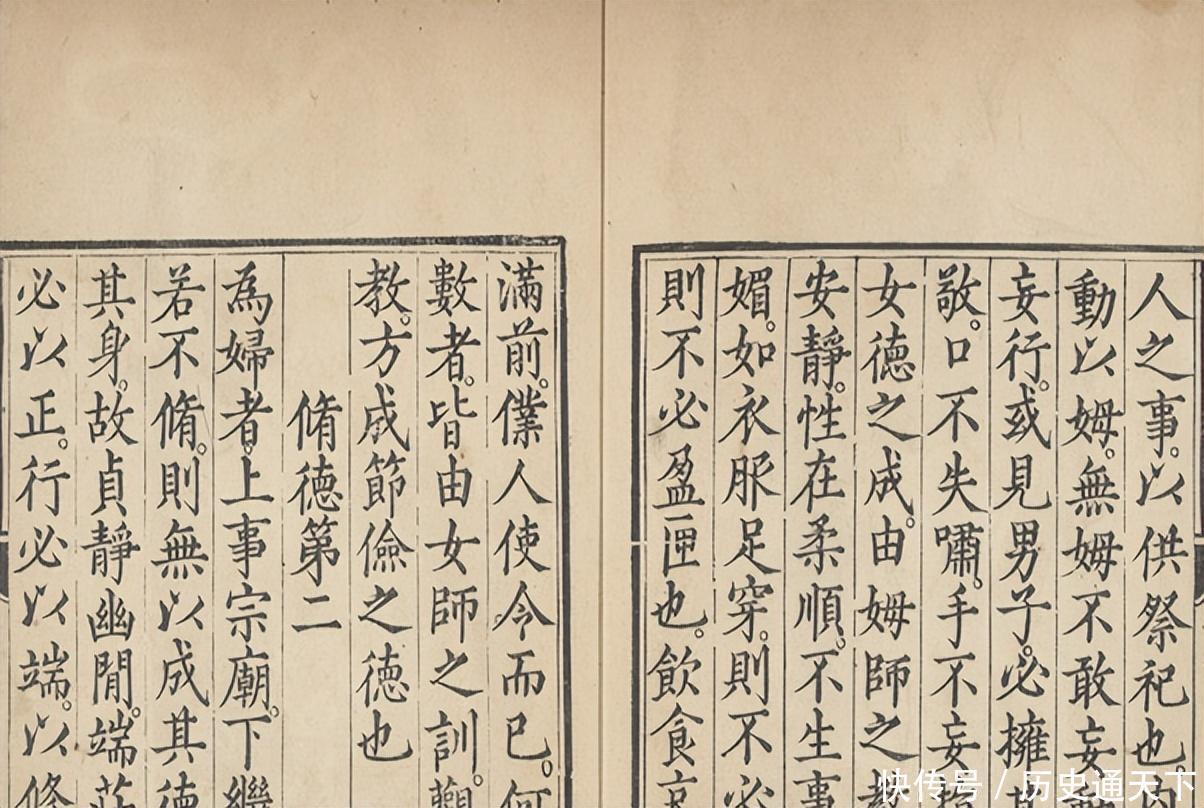 人之事。以供祭祀也。
動以姆。無姆不敢妄
妄行。或見男子。必擁
敬。口不失嘯。手不妄
女徳之成。由姆師之教
安靜。性在柔順。不生事
媚。如衣服足穿。則不必
則不必盈匣也。飲食
滿前。僕人使令而已。何
數者。皆由女師之訓。
教。方成節儉之徳也
脩徳第二
為婦者。上事宗廟。下繼
若不脩。則無以成其徳
其身。故貞靜幽閒。端莊
必以正。行必以端。以脩
快传号/历史通天下